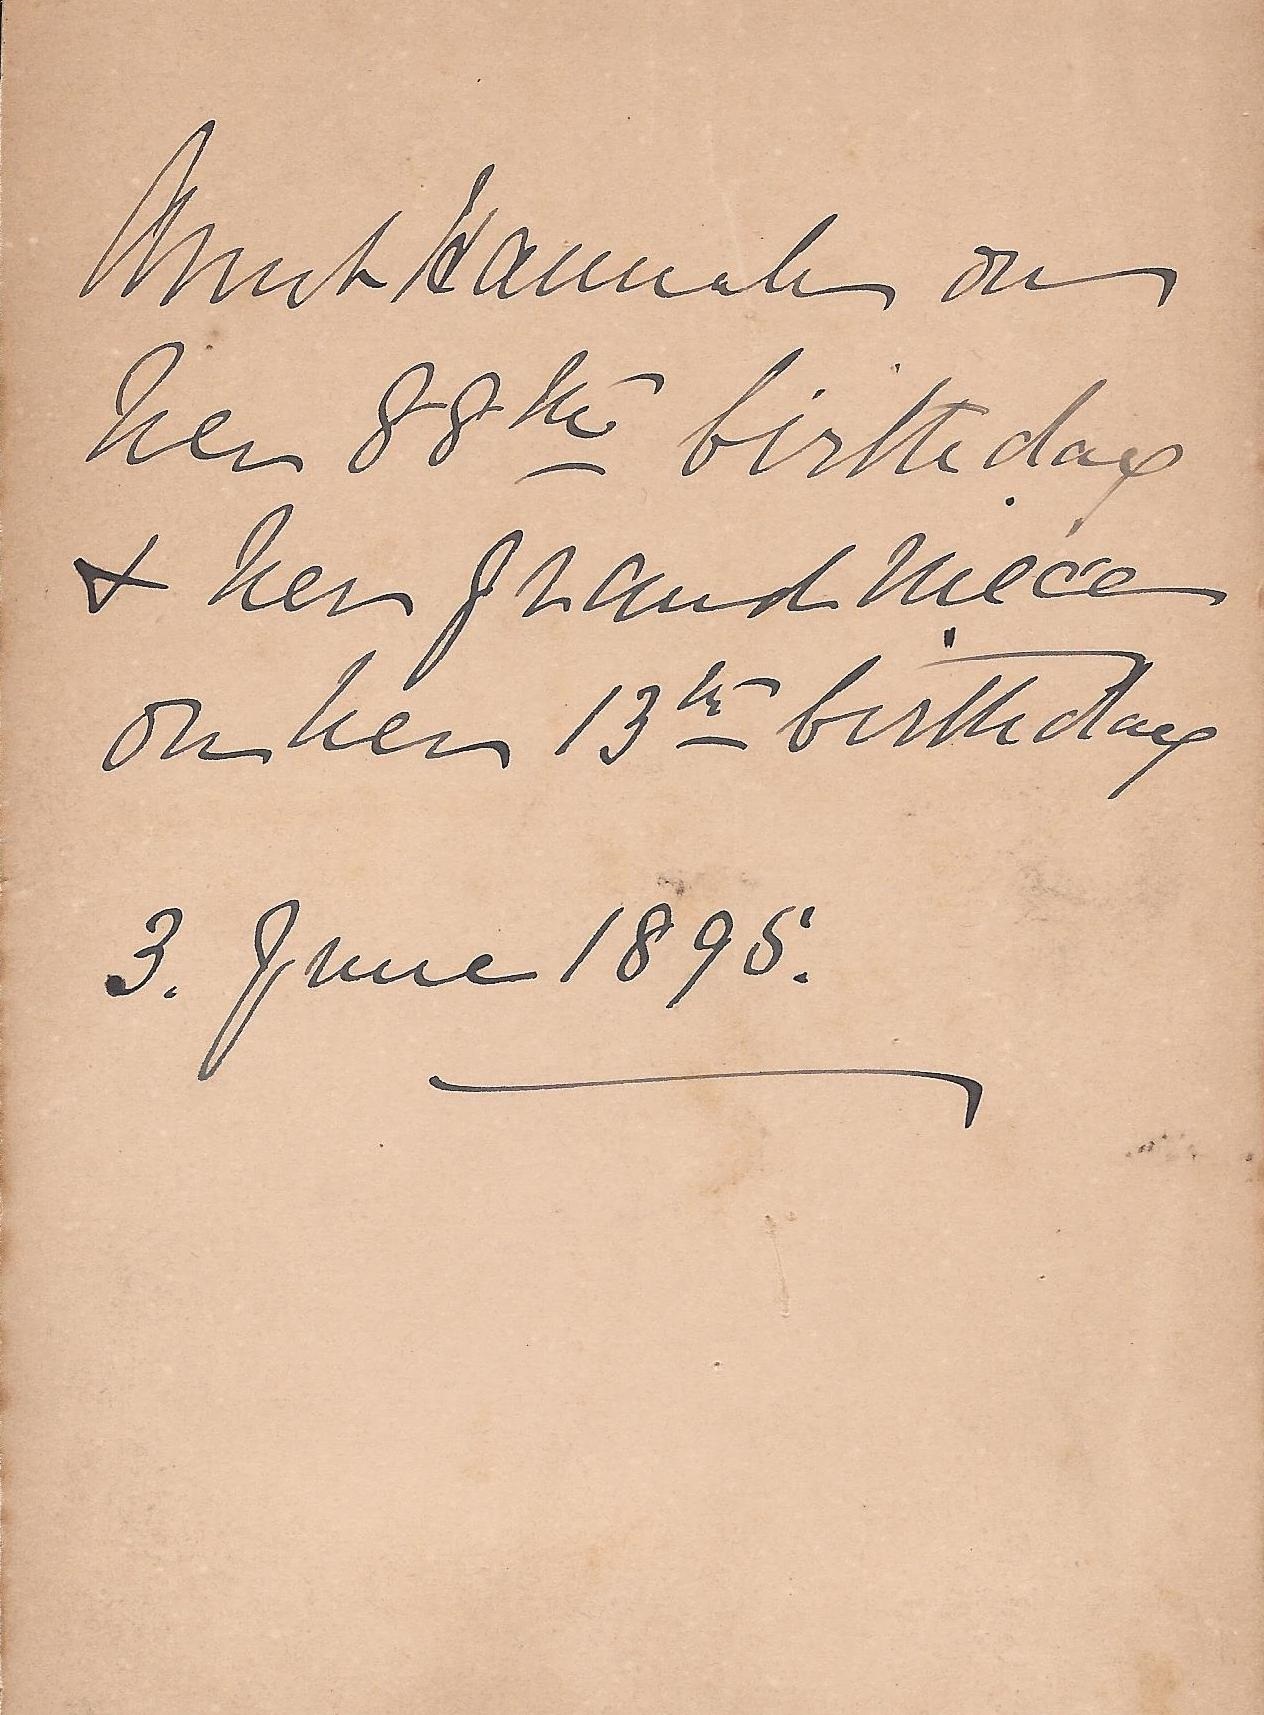 Aunt Hannah on
her 88th birthday
& her grand niece
on her 13th birthday
3. June 1895.